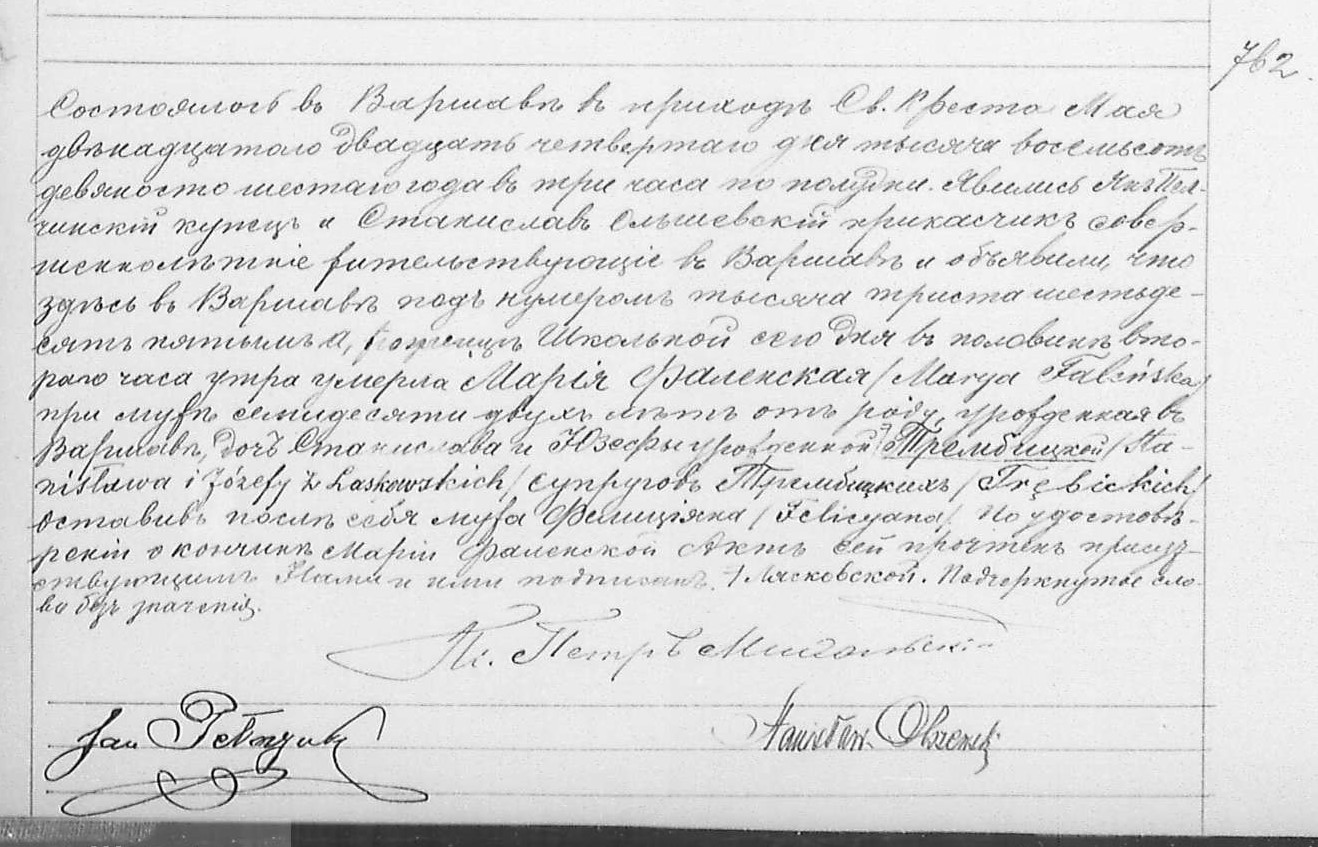 762.
Состоялось въ Варшавѣ въ приходѣ Св. Креста Мая
двѣнадцатого двадцать четвертаго дня тысяча восемьсотъ
девяносто шестаго года въ три часа по полудни. Явились Янъ Пел-
чинскій купецъ и Станиславъ Ольшевскій прикасчикъ совер-
шеннолѣтніе жительствующіе въ Варшавѣ и объявили, что
здѣсь въ Варшавѣ подъ нумеромъ тысяча триста шестьде-
сятъ пятымъ а, Школьной сего дня въ половинѣ вто-
раго часа утра умерла Марія Фаленская /Marya Faleńska/
при мужѣ семидесяти двухъ лѣтъ отъ роду, урожденная въ
Варшавѣ, дочь Станислава и Юзефы урожденной Трембицкой /Sta-
nisława i Józefy z Laskowskich/ супруговъ Трембицкихъ /Trębickich/
Оставивъ послѣ себя мужа Фелиціяна /Felicyana/. По удостовѣ-
реніи о кончинѣ Маріи Фаленской Актъ сей прочтенъ присут-
ствующимъ Нами и ими подписанъ. Лясковской. Подчеркнутое сло-
во безъ значенія.
Петръ
Jan
Stanisław